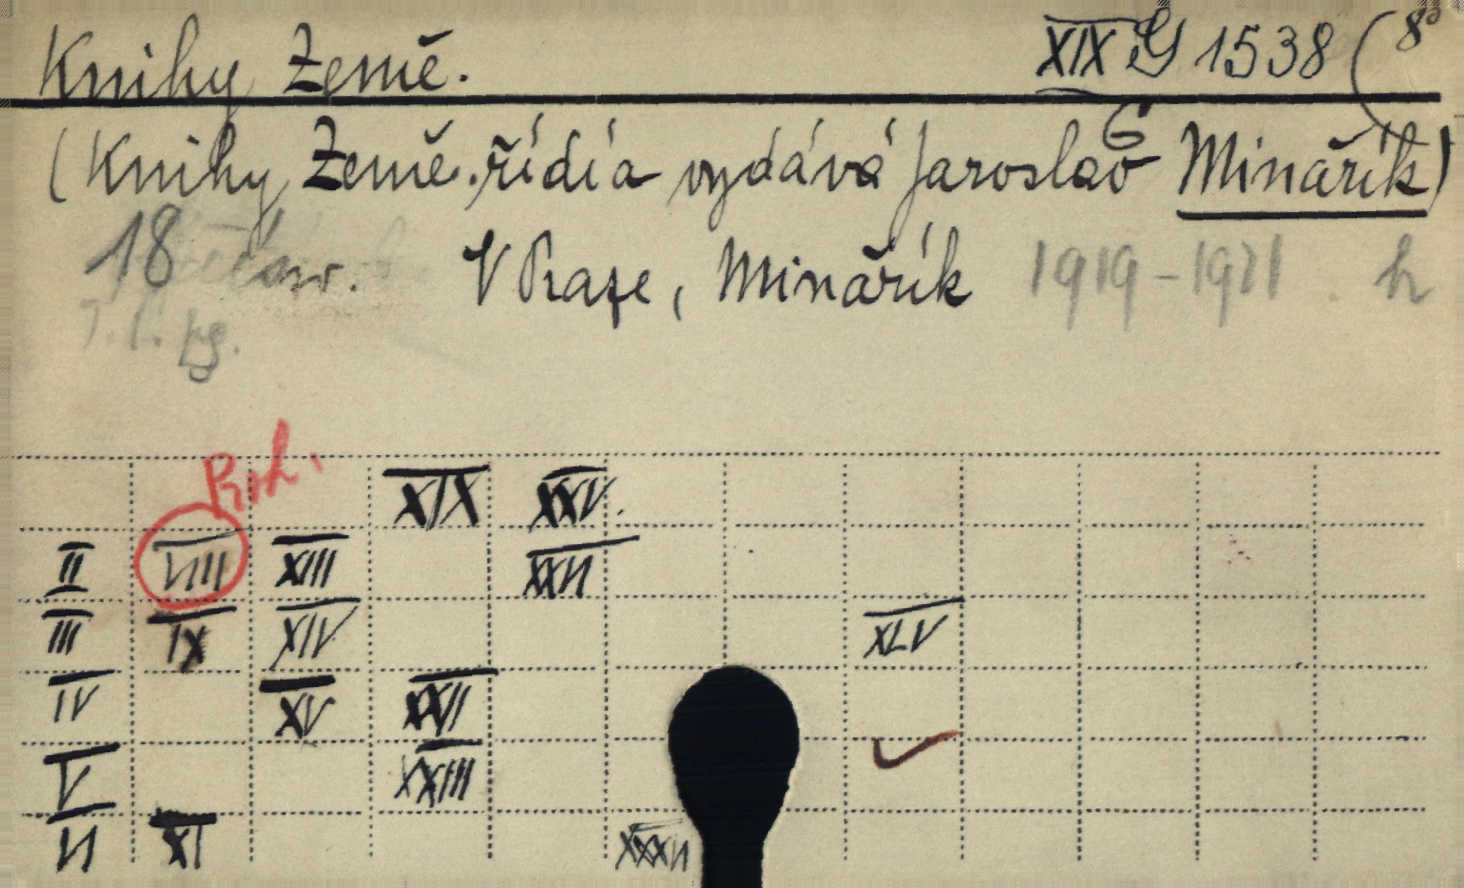 Knihy Země. XIX G 1538 (8°
(Knihy Země. řídí a vydává Jaroslav Minařík)
G
18 V Praze, Minařík 1919-1921. h
Roh.
XIX XXV.
II VIII XIII XXVI
III IX XIV XLV
IV XV XXII
V XXIII
VI XI XXXVI